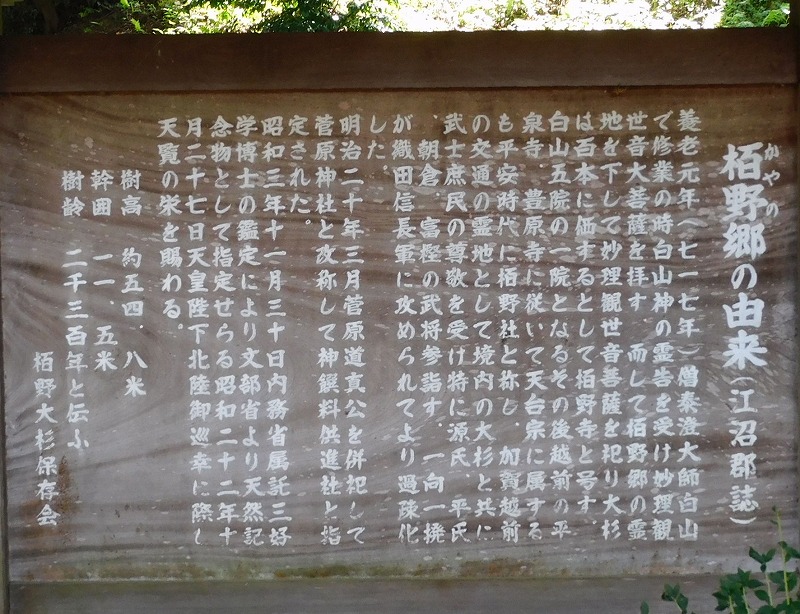 かやの
栢野郷の由来(江沼郡誌)
養老元年(七一七年)僧泰澄大師白山
で修業の時白山神の霊告を受け妙理観
世音大菩薩を拝す 而して栢野郷の霊
地を下して妙理観世音菩薩を祀り大杉
は百本に価するとして栢野寺と号す、
白山五院の一院となるその後越前の平
泉寺、豊原寺に従いて天台宗に属する
も平安時代に栢野社と称し、加賀越前
の文通の霊地として境内の大杉と共に
武士庶民の尊敬を受け特に源氏、平氏
、朝倉、富樫の武将参詣す。一向一揆
が織田信長軍に攻められてより過疎化
した。
明治二十年三月菅原道真公を併祀して
菅原神社と改称して神饌料供進社と指
定された。
昭和三年十一月三十日内務省属託三好
学博士の鑑定により文部省より天然記
念物として指定せらる昭和二十二年十
月二十七日天皇陛下北陸御巡幸に際し
天覧の栄を賜わる。
樹高 約五四、八米
幹囲 一一、五米
樹齢 二千三百年と伝ふ
栢野大杉保存会